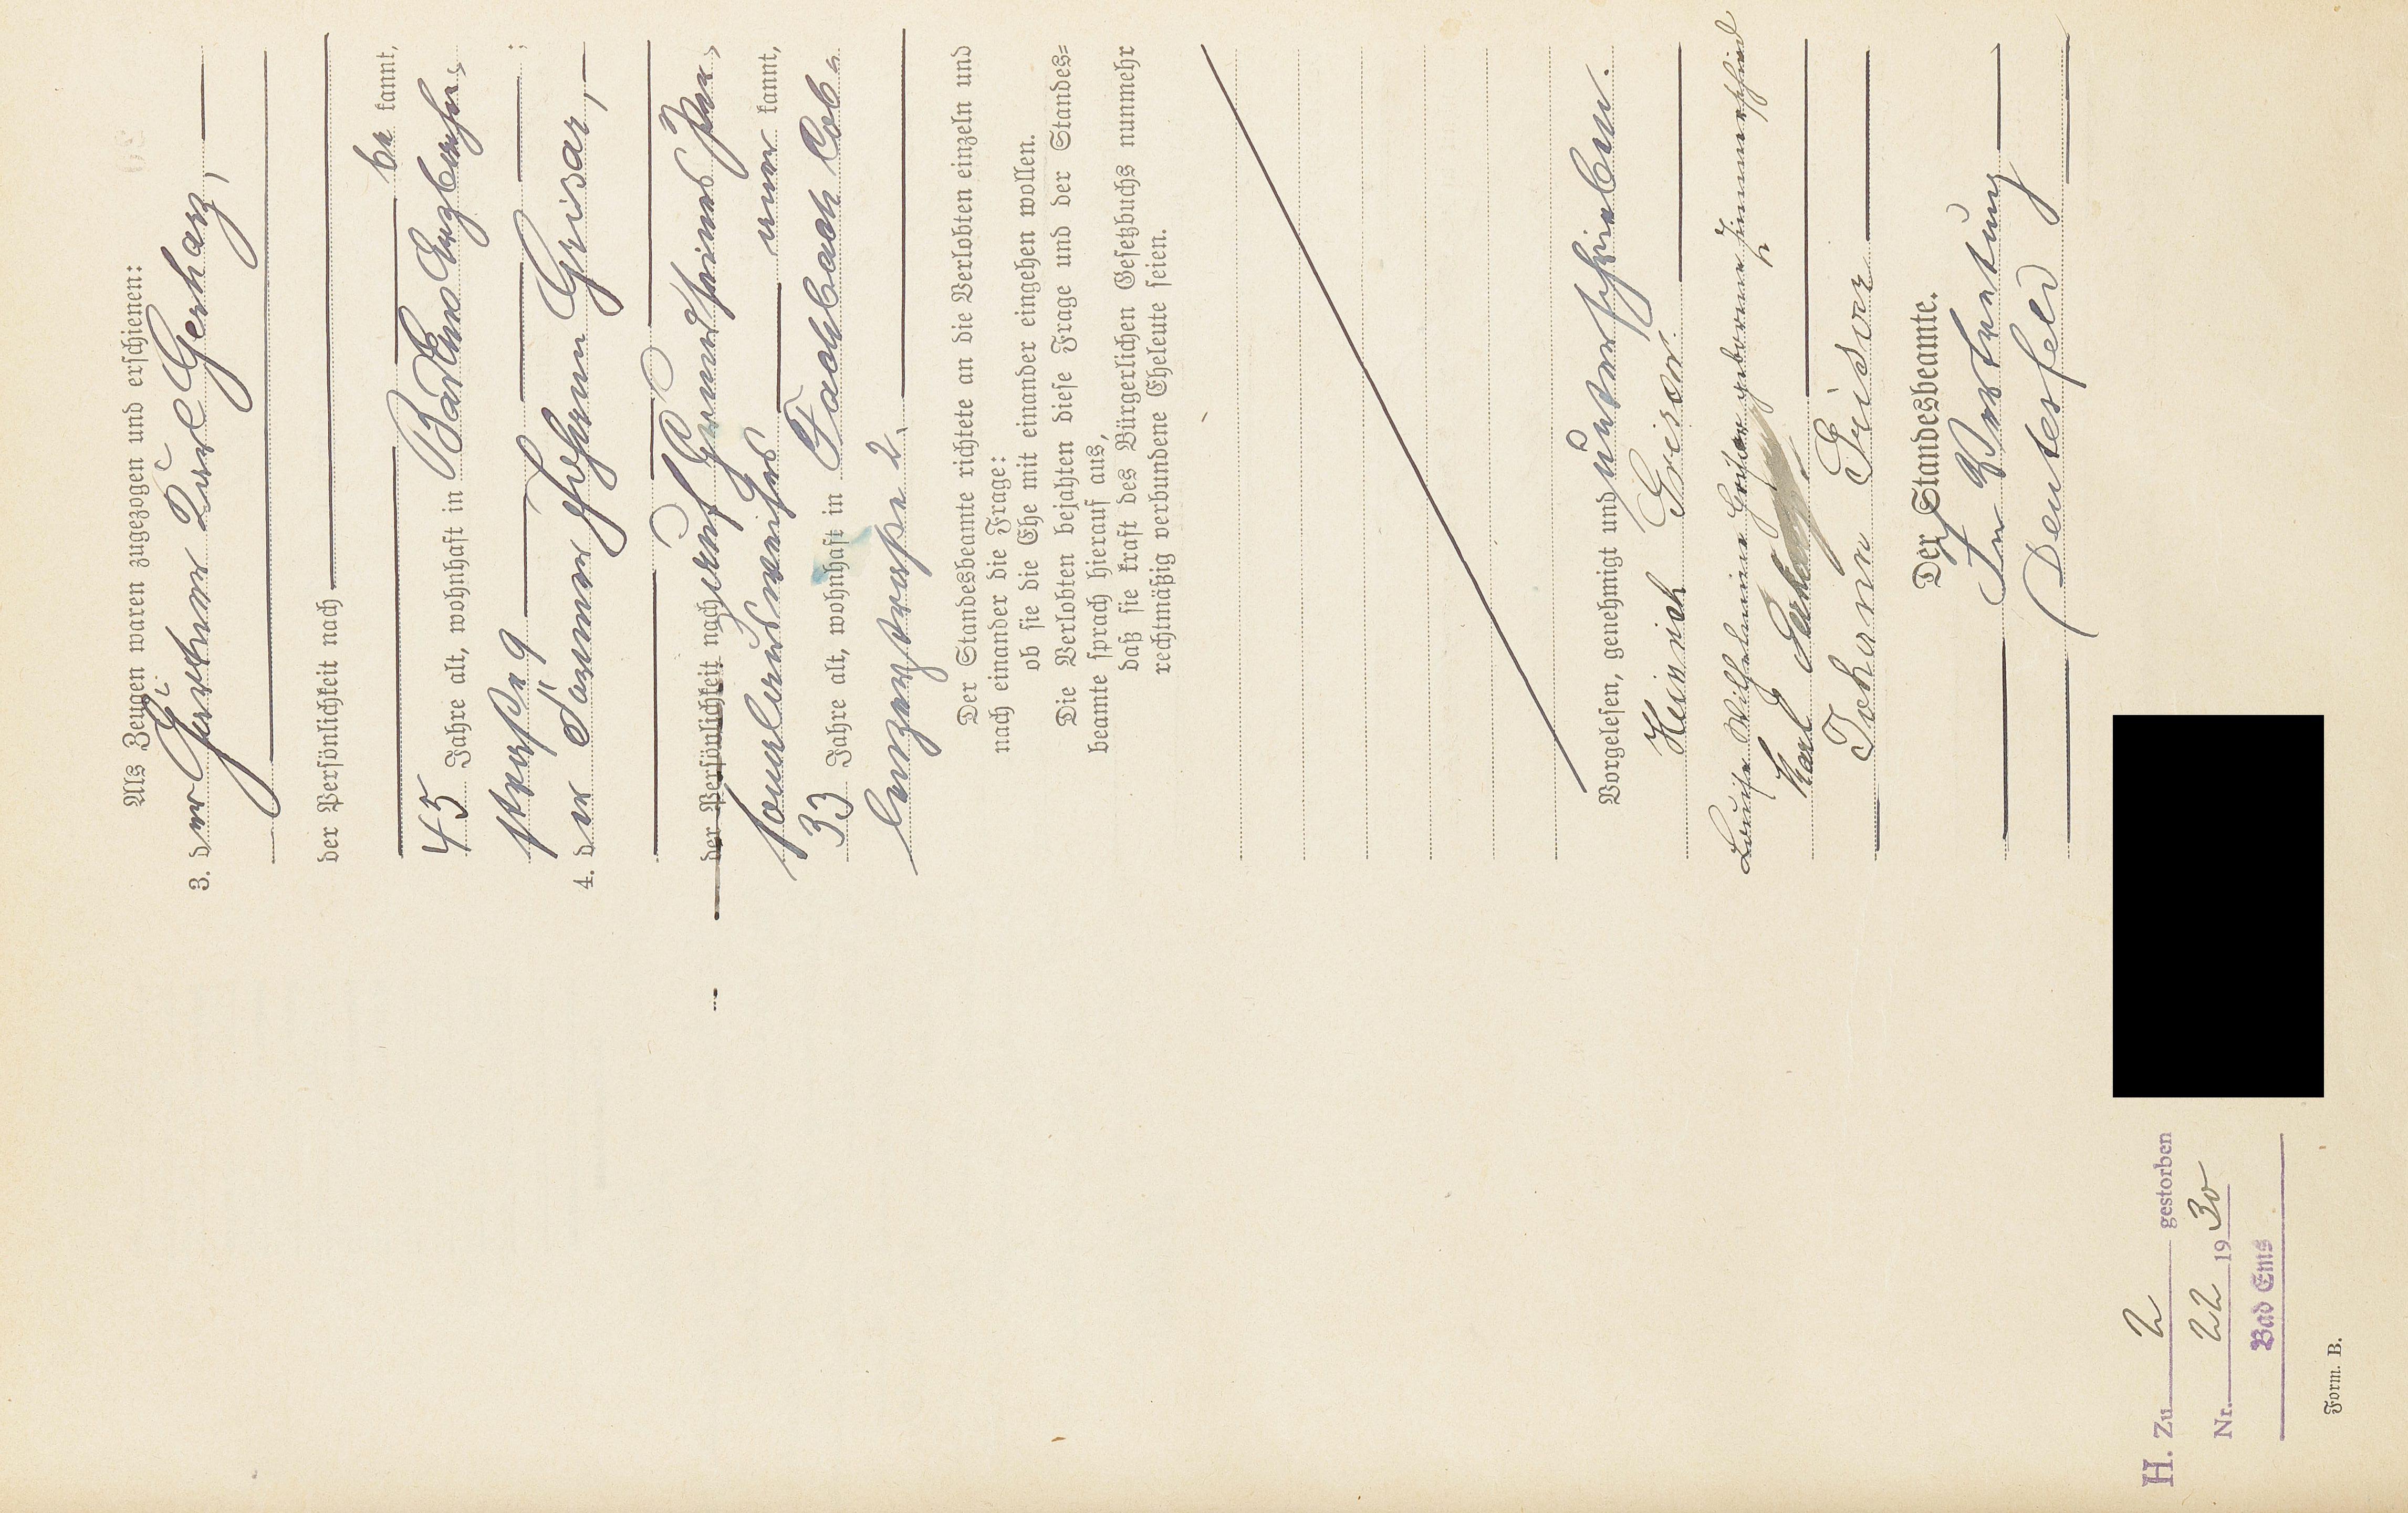 Als Zeugen waren zugezogen und erschienen:
3. der Gärtner Karl Gerharz,
der Persönlichkeit nach
be kannt,
45 Jahre alt, wohnhaft in Bad Ems
straße 9
4. der Johann Grisar,
der Persönlichkeit nach auf Grund seines
kannt,
33 Jahre alt, wohnhaft in Fachbach Cob-
lenzerstraße 2.
Der Standesbeamte richtete an die Verlobten einzeln und
nach einander die Frage:
ob sie die Ehe mit einander eingehen wollen.
Die Verlobten bejahten diese Frage und der Standes=
beamte sprach hierauf aus,
daß sie kraft des Bürgerlichen Gesetzbuchs nunmehr
rechtmäßig verbundene Eheleute seien.
Vorgelesen, genehmigt und unterschrieben.
Heinrich Grisar
Louise Wilhelmine Grisar geborene Himmerscheid
Karl
Johann Grisar
Der Standesbeamte.
In Vertretung
Deutesfeld
H. Zu 2 gestorben
Nr. 22 1930
Bad Ems
Form. B.